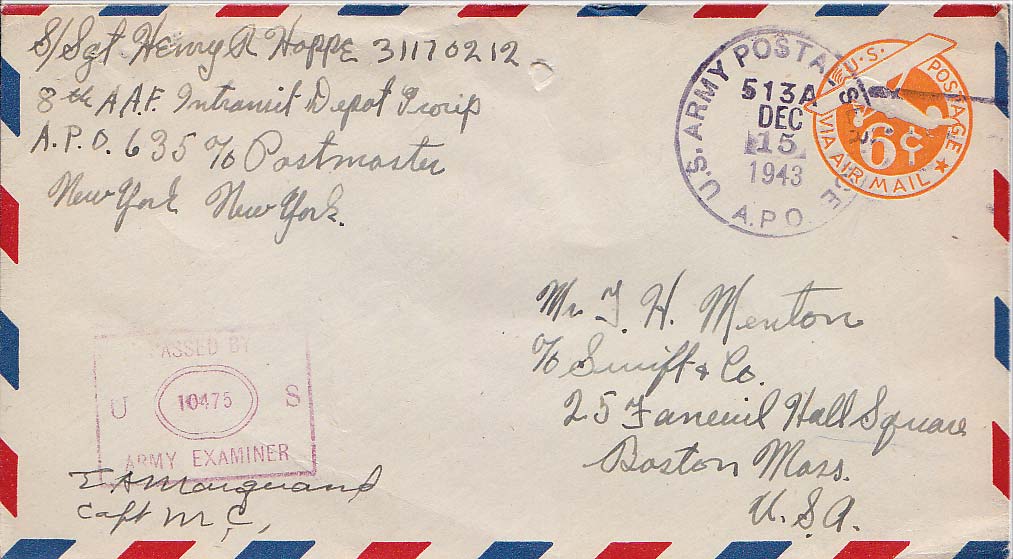 S/Sgt Henry R Hoppe 31170212
8th A.A.F. Intransit Depot Group
A.P.O. 635 c/o Postmaster
New York New York.
U.S. ARMY POSTAL SERVICE
513A
DEC
15
1943
A.P.O.
U.S. POSTAGE
6¢
VIA AIR MAIL
Mr. T. H. Menton
c/o Swift & Co.
25 Faneuil Hall Square
Boston Mass.
U.S.A.
PASSED BY
U 10475 S
ARMY EXAMINER
Capt M.C.,